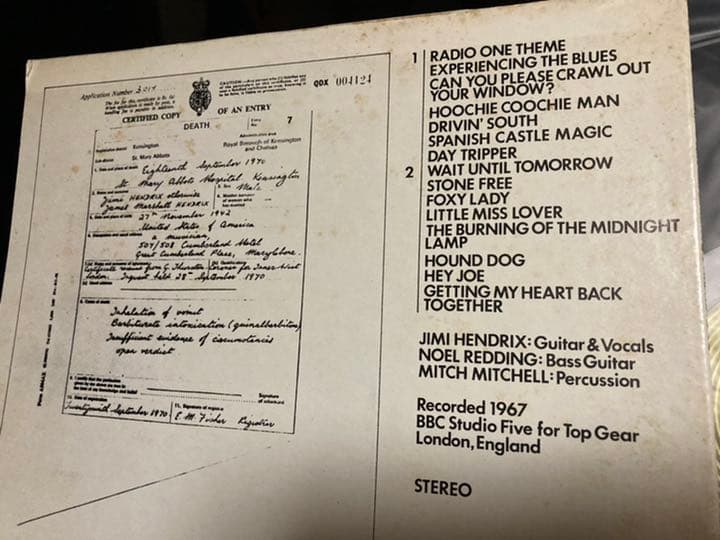 Application Number
CERTIFIED COPY
OF AN ENTRY
QDX 004124
DEATH
Entry No. 7
Registration district Kensington
Administrative area
Sub-district St. Mary Abbots
Royal Borough of Kensington and Chelsea
1. Date and place of death Eighteenth September 1970
St Mary Abbots Hospital Kensington
2. Name and surname
3. Sex Male
Jimi HENDRIX otherwise
James Marshall HENDRIX
27th November 1942
United States of America
a musician,
507/508 Cumberland Hotel
Great Cumberland Place, Marylebone.
Certificate from G. Thurston Coroner for Inner West
London. Inquest held 28th September 1970
8. Cause of death
Inhalation of vomit
Barbiturate intoxication (quinalbarbitone)
Insufficient evidence of circumstances
open verdict
Signature
10. Date of registration
11. Signature of registrar
September 1970
E. M. Fisher Registrar
1 RADIO ONE THEME
EXPERIENCING THE BLUES
CAN YOU PLEASE CRAWL OUT
YOUR WINDOW?
HOOCHIE COOCHIE MAN
DRIVIN' SOUTH
SPANISH CASTLE MAGIC
DAY TRIPPER
2 WAIT UNTIL TOMORROW
STONE FREE
FOXY LADY
LITTLE MISS LOVER
THE BURNING OF THE MIDNIGHT
LAMP
HOUND DOG
HEY JOE
GETTING MY HEART BACK
TOGETHER
JIMI HENDRIX: Guitar & Vocals
NOEL REDDING: Bass Guitar
MITCH MITCHELL: Percussion
Recorded 1967
BBC Studio Five for Top Gear
London, England
STEREO